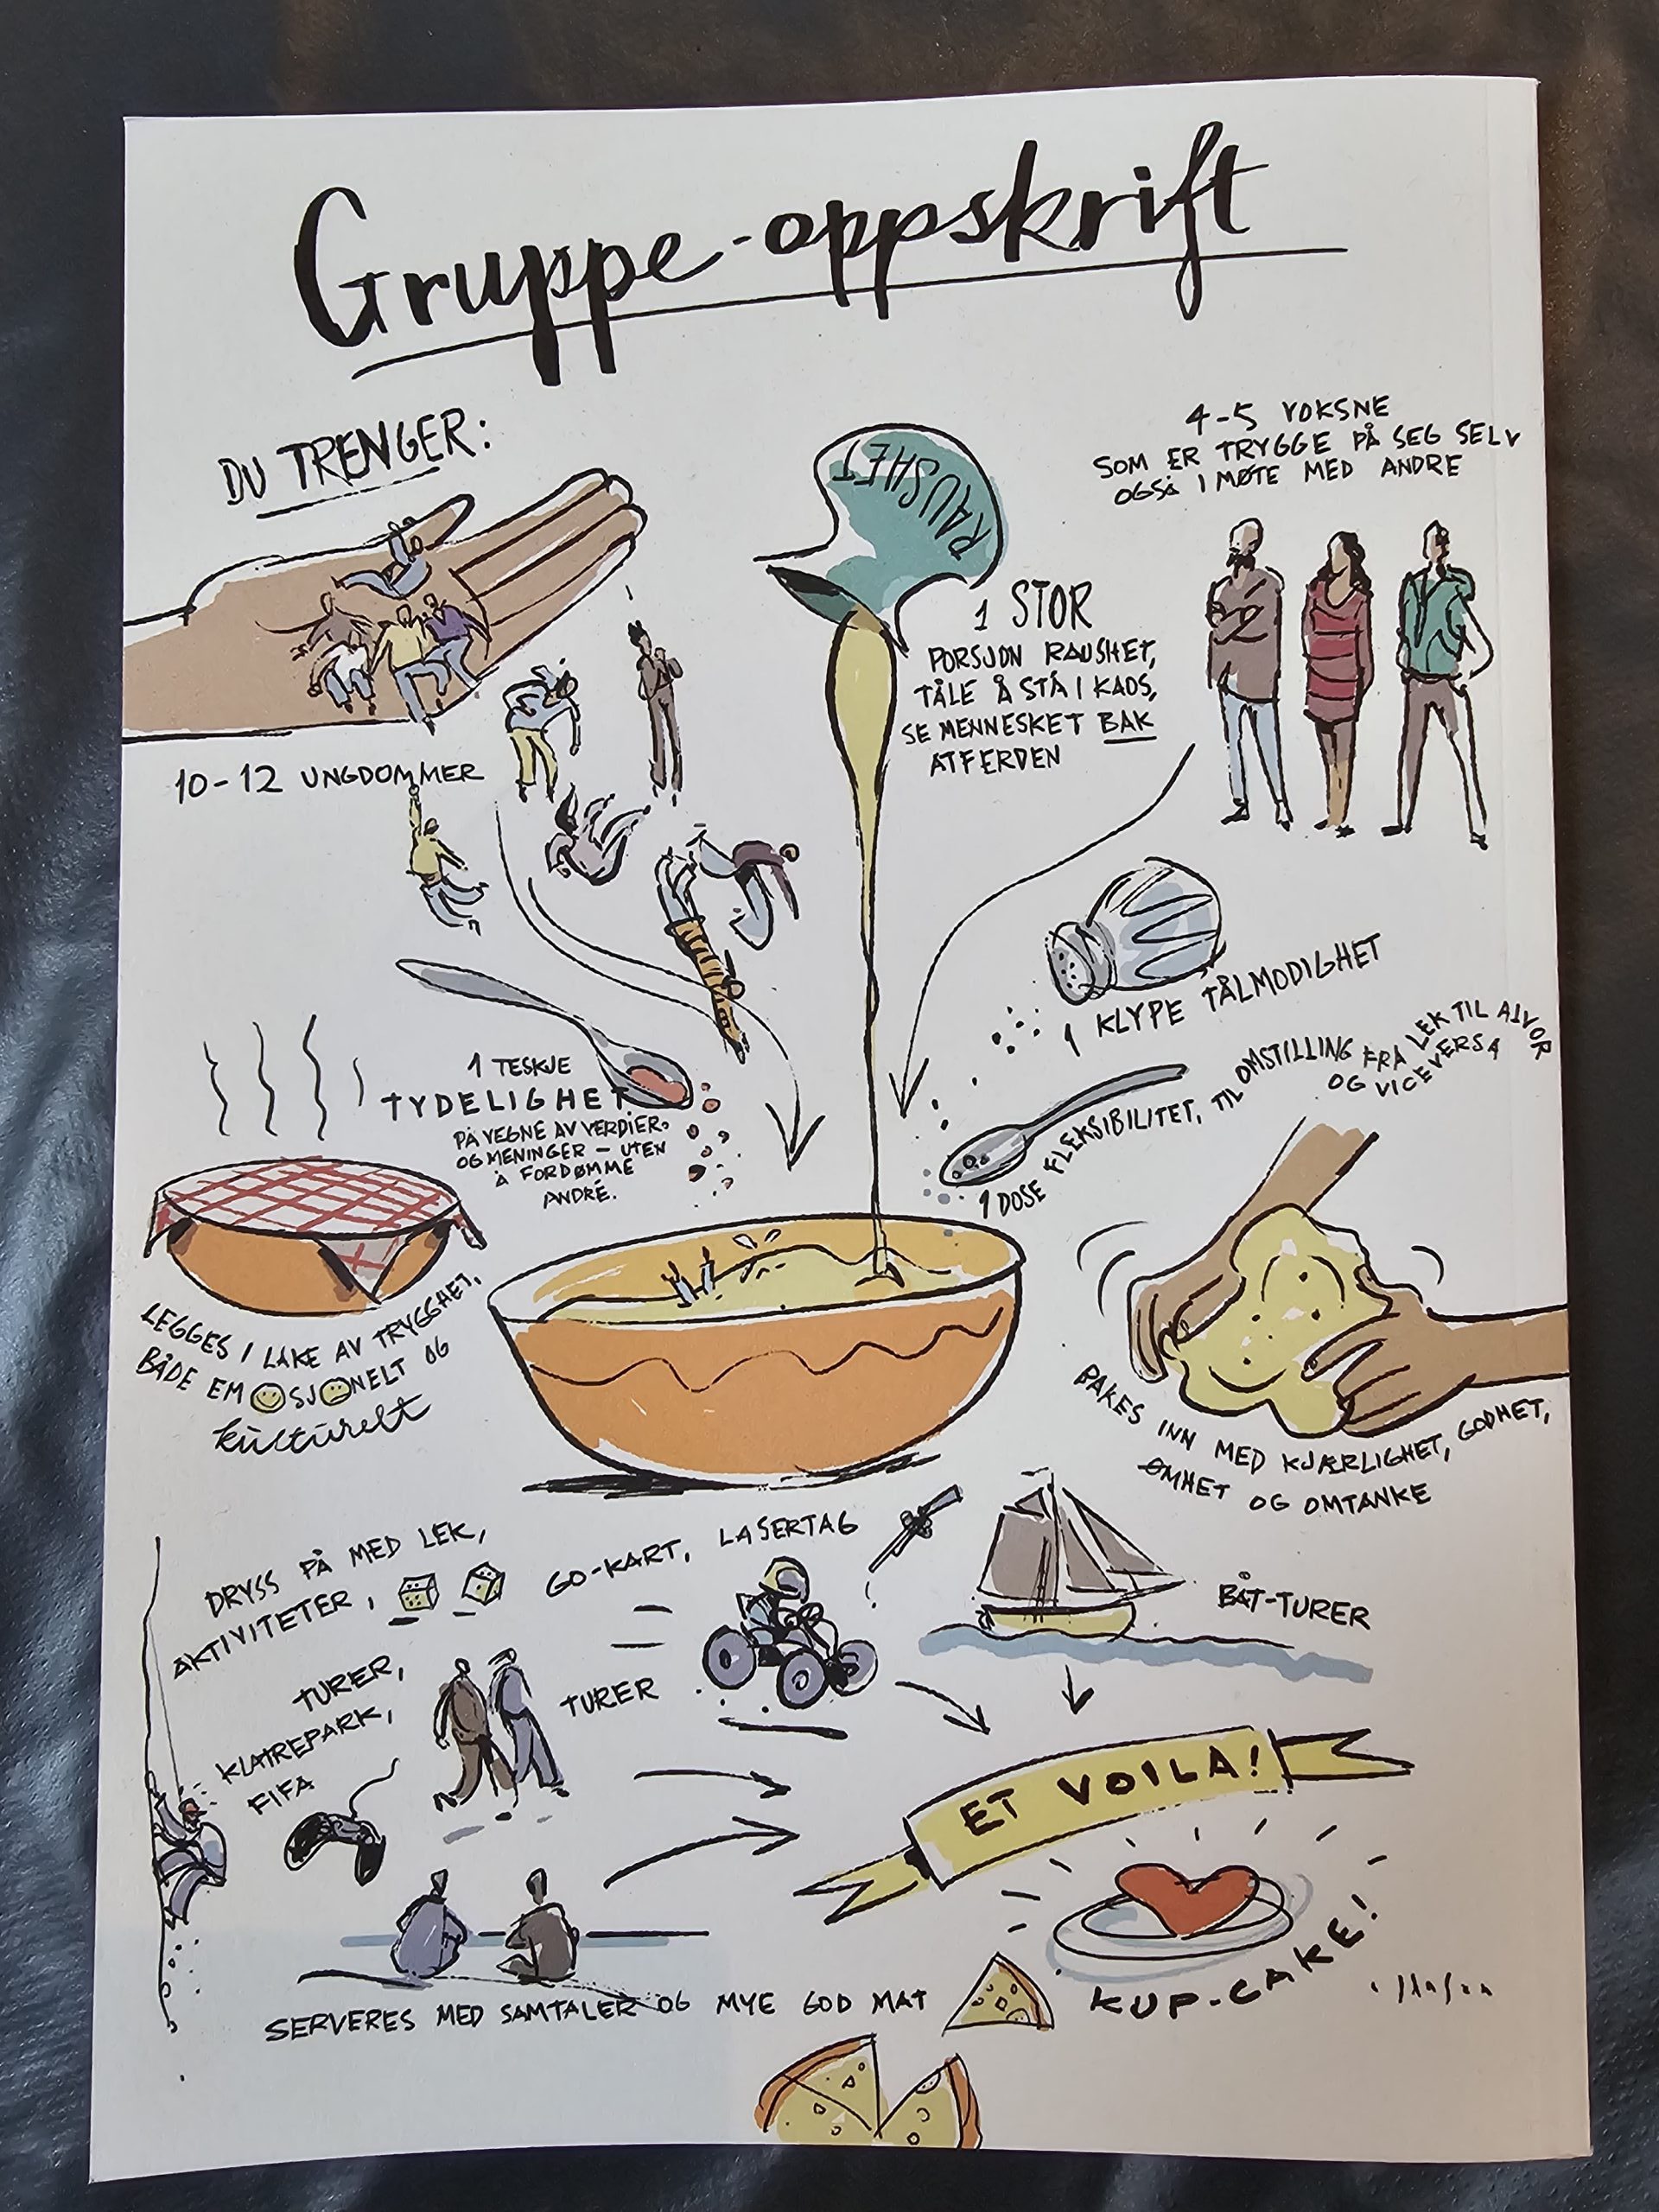 Gruppe-oppskrift
DU TRENGER:
10-12 UNGDOMMER
RAUSHET
1 STOR
PORSJON RAUSHET,
TÅLE Å STÅ I KAOS,
SE MENNESKET BAK
ATFERDEN
4-5 VOKSNE
SOM ER TRYGGE PÅ SEG SELV
OGSÅ I MØTE MED ANDRE
1 KLYPE TÅLMODIGHET
1 DOSE FLEKSIBILITET, TIL OMSTILLING FRA LEK TIL ALVOR
OG VICE VERSA
1 TESKJE
TYDELIGHET
PÅ VEGNE AV VERDIER
OG MENINGER – UTEN
Å FORDØMME
ANDRE.
LEGGES I LAKE AV TRYGGHET,
BÅDE EMOSJONELT OG
kulturelt
BAKES INN MED KJÆRLIGHET, GODHET,
ØMHET OG OMTANKE
DRYSS PÅ MED LEK,
AKTIVITETER,
GO-KART, LASERTAG
BÅT-TURER
TURER,
KLATREPARK,
FIFA
TURER
ET VOILA!
KUP-CAKE!
SERVERES MED SAMTALER OG MYE GOD MAT